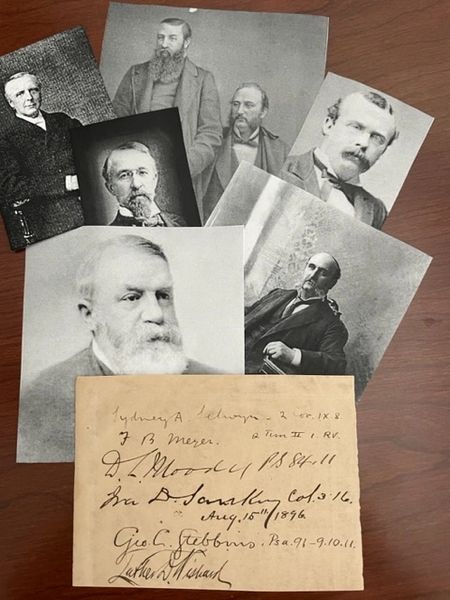 Sydney A Selwyn - 2 Cor. IX. 8
F B Meyer. 2 Tim II 1. RV.
D. L. Moody PS 84.11
Ira D. Sankey Col. 3.16.
Aug. 15th / 1896
Geo. C. Stebbins. Psa. 91-9.10.11.
Luther D. Wishard